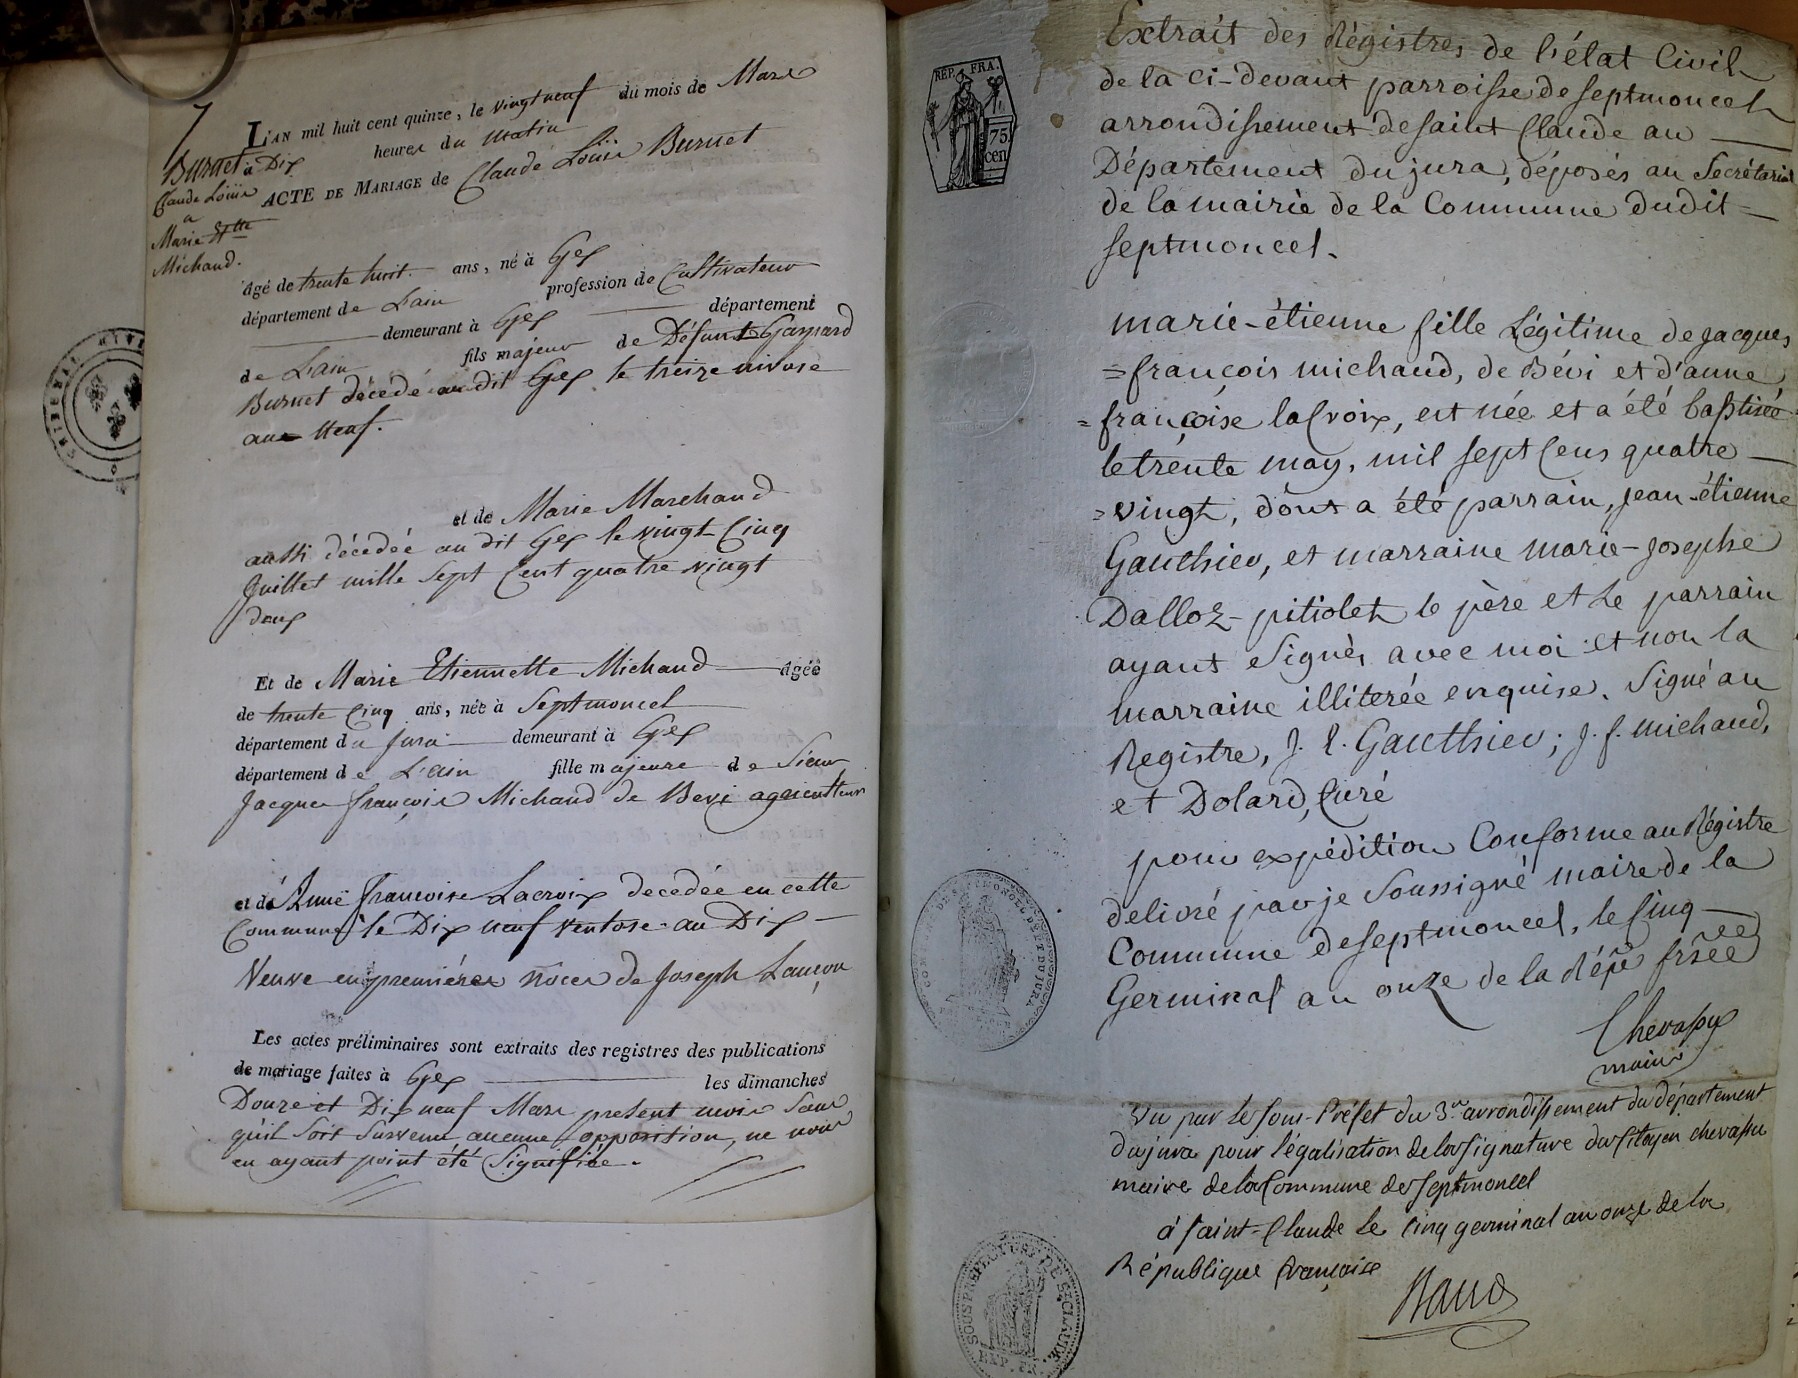 7
Burnet
Claude Loüis
a
Marie Ette
Michaud.
L'AN mil huit cent quinze, le vingt neuf du mois de Mars
à Dix heures du matin
ACTE DE MARIAGE de Claude Loüis Burnet
âgé de trente huit ans, né à Gex
département de L'ain profession de Cultivateur
demeurant à Gex département
de L'ain fils majeur de Défunt Gaspard
Burnet décédé au dit Gex le treize nivose
an neuf.
et de Marie Marchand
aussi décédée au dit Gex le vingt Cinq
Juillet mille Sept Cent quatre vingt
deux
Et de Marie Etiennette Michaud âgée
de trente Cinq ans, née à Septmoncel
département du Jura demeurant à Gex
département de L'ain fille majeure de Sieur
Jacques françois Michaud de Bevi agriculteur
et de Anne françoise Lacroix decedée en cette
Commune le Dix neuf ventose an Dix
Veuve en premières noces de Joseph Lançon
Les actes préliminaires sont extraits des registres des publications
de mariage faites à Gex les dimanches
Douze et Dix neuf Mars present mois Sans
qu'il Soit Survenu aucune opposition, ne nous
en ayant point été Signifiée.
REP. FRA.
75
cen
Extrait des Régistres de l'état Civil
de la ci-devant parroisse de septmoncel
arrondissement de saint Claude au
Département du jura, déposés au Secrétariat
de la mairie de la Commune dudit
septmoncel.
marie-étienne fille Légitime de jacques
=françois michaud, de Bévi et d'anne
=françoise laCroix, est née et a été baptisée
le trente may, mil sept Cens quatre
=vingt, dont a été parrain, jean-étienne
Gauthier, et marraine marie-josephe
Dalloz-pitiolet le père et le parrain
ayant signés avec moi et non la
marraine illiterée enquise. Signé au
Registre, J. E. Gauthier; J. f. michaud,
et Dolard, Curé
pour expédition Conforme au Régistre
delivré par je Soussigné maire de la
Commune de septmoncel, le Cinq
Germinal an onze de la Répe. frsée
Chevassu
maire
Vu par le sous-Préfet du 3e arrondissement du département
du jura pour légalisation de la signature du Citoyen chevassu
maire de la Commune de septmoncel
à saint-Claude le Cinq germinal an onze de la
République française
SOUS PREFECTURE DE ST CLAUDE.
REP. FR.